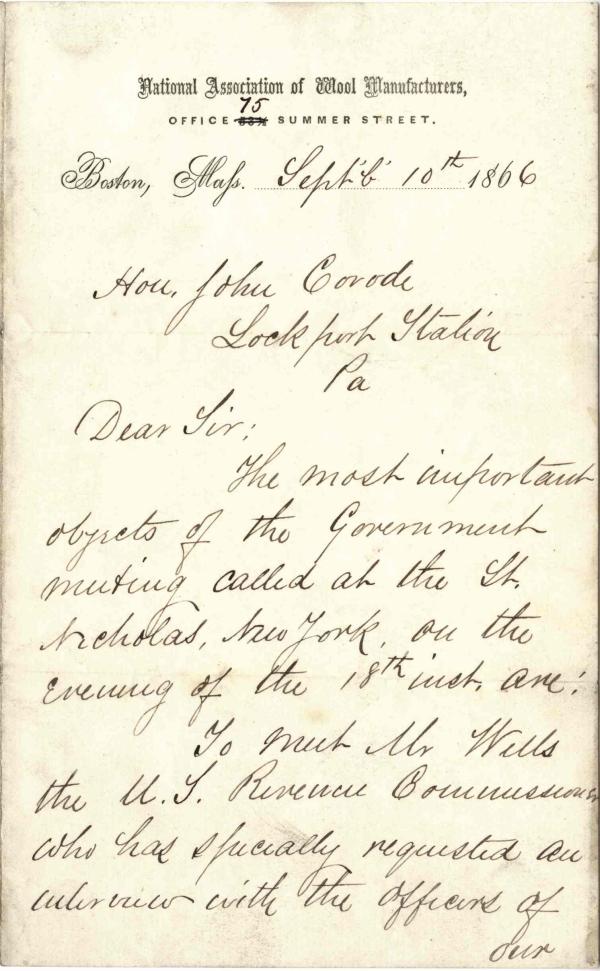 National Association of Wool Manufacturers,
75
OFFICE SUMMER STREET.
Boston, Mass. Sept'b' 10th 1866
Hon. John Covode
Lockport Station
Pa
Dear Sir:
The most important
objects of the Government
meeting called at the St.
Nicholas, New York, on the
evening of the 18th inst. are:
To meet Mr Wells
the U.S. Revenue Commissioner
who has specially requested an
interview with the officers of
our